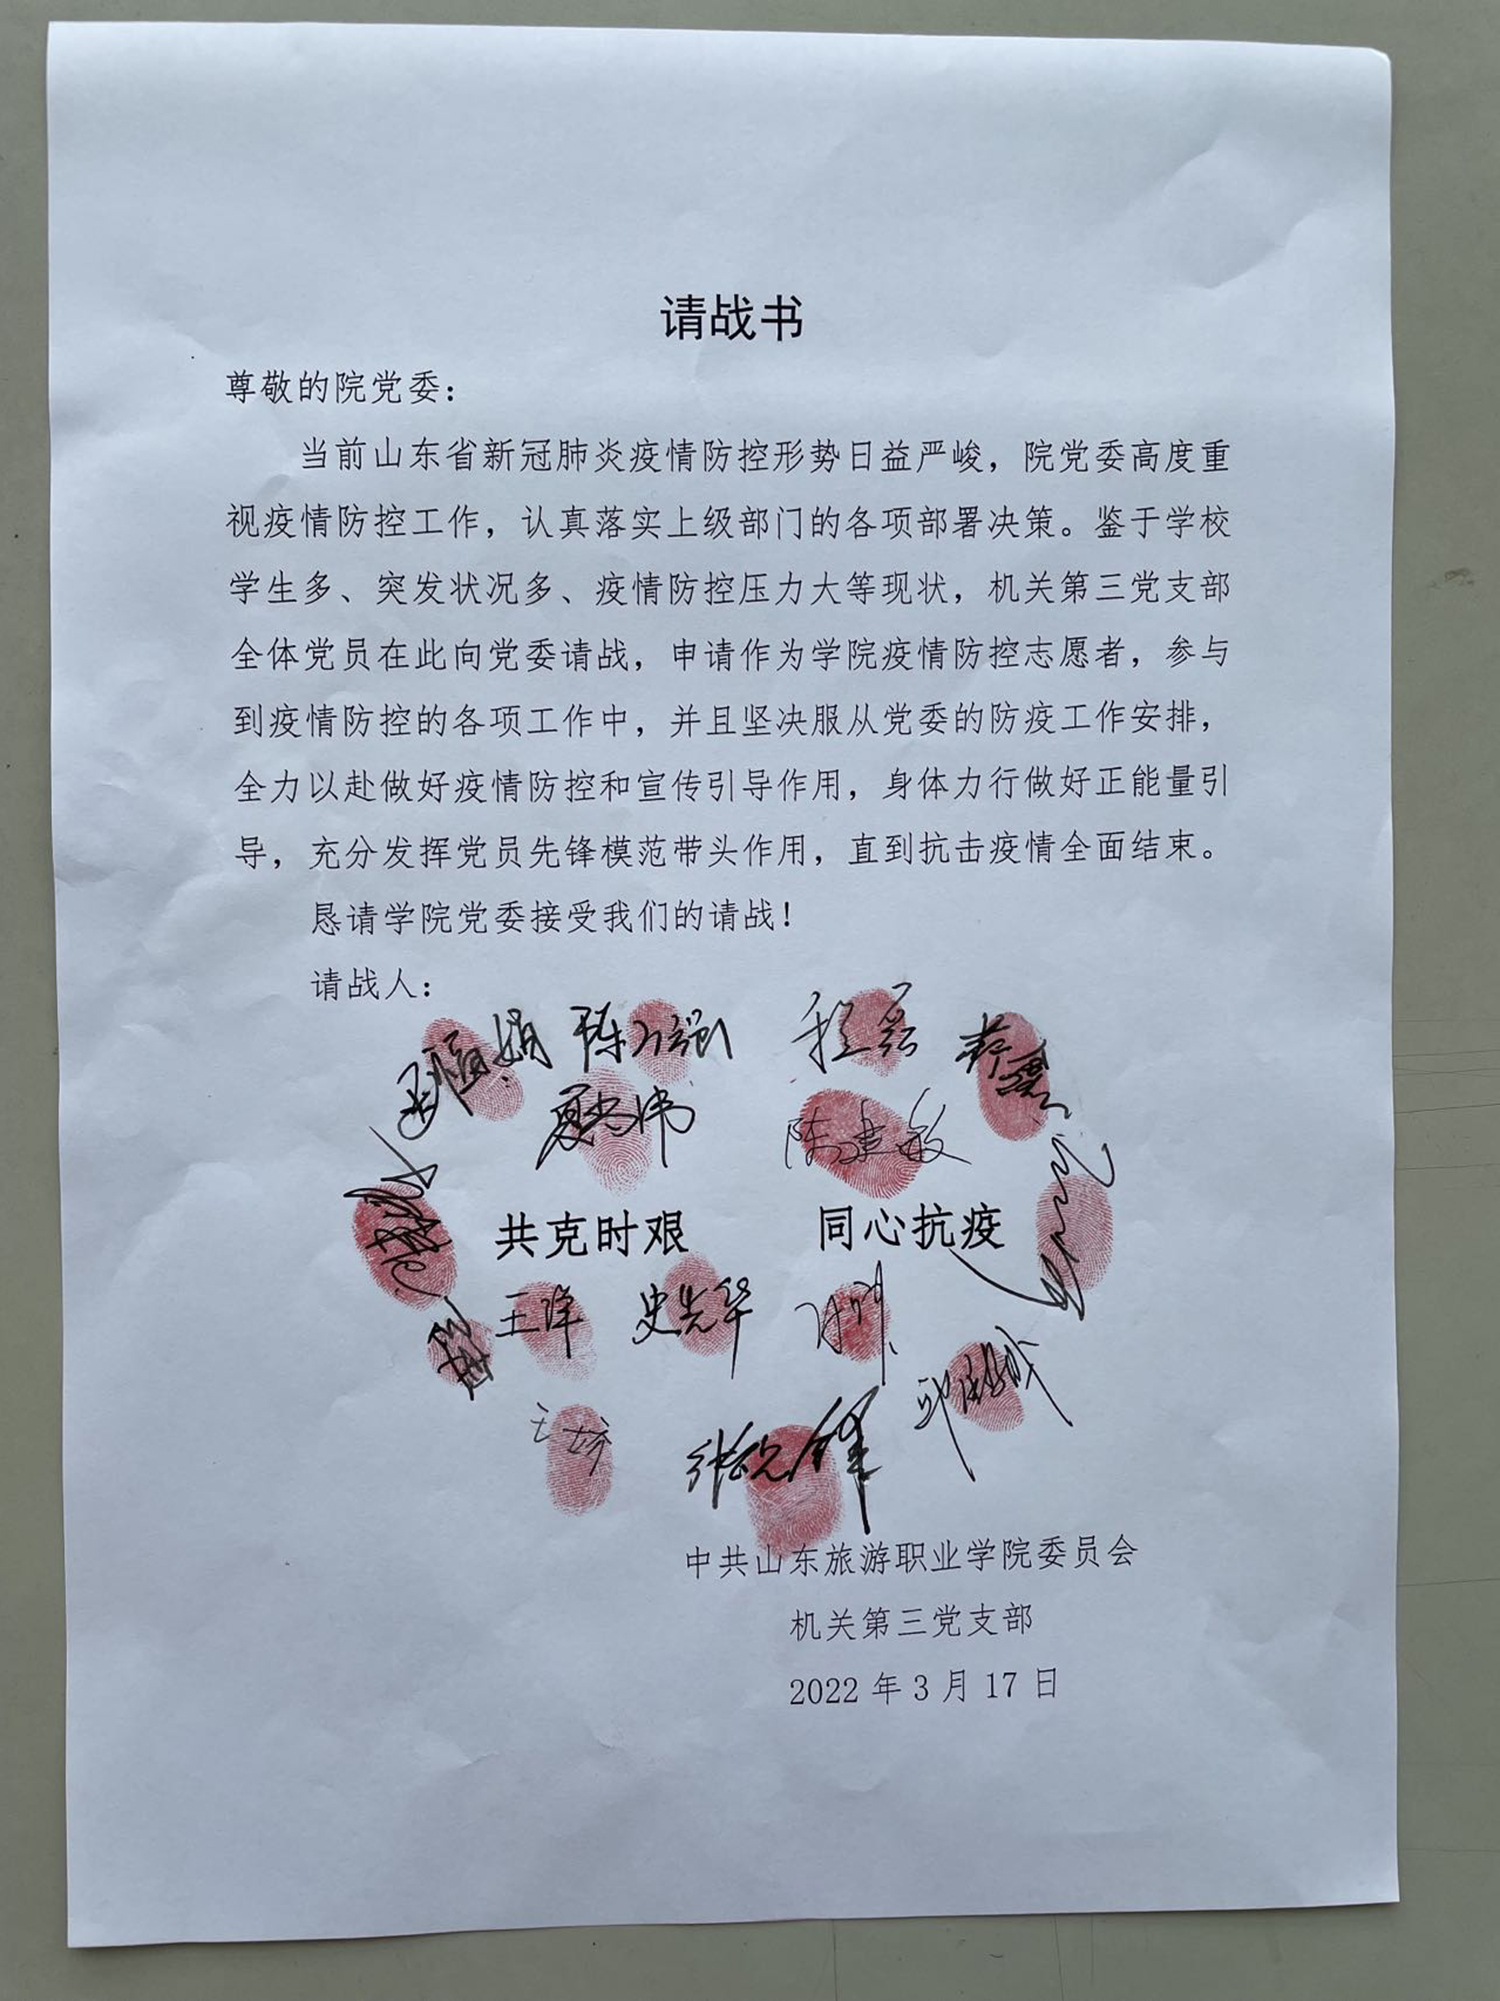 请战书
尊敬的院党委：
当前山东省新冠肺炎疫情防控形势日益严峻，院党委高度重
视疫情防控工作，认真落实上级部门的各项部署决策。鉴于学校
学生多、突发状况多、疫情防控压力大等现状，机关第三党支部
全体党员在此向党委请战，申请作为学院疫情防控志愿者，参与
到疫情防控的各项工作中，并且坚决服从党委的防疫工作安排，
全力以赴做好疫情防控和宣传引导作用，身体力行做好正能量引
导，充分发挥党员先锋模范带头作用，直到抗击疫情全面结束。
恳请学院党委接受我们的请战！
请战人：
陈建敏
共克时艰 同心抗疫
史先华
中共山东旅游职业学院委员会
机关第三党支部
2022年3月17日